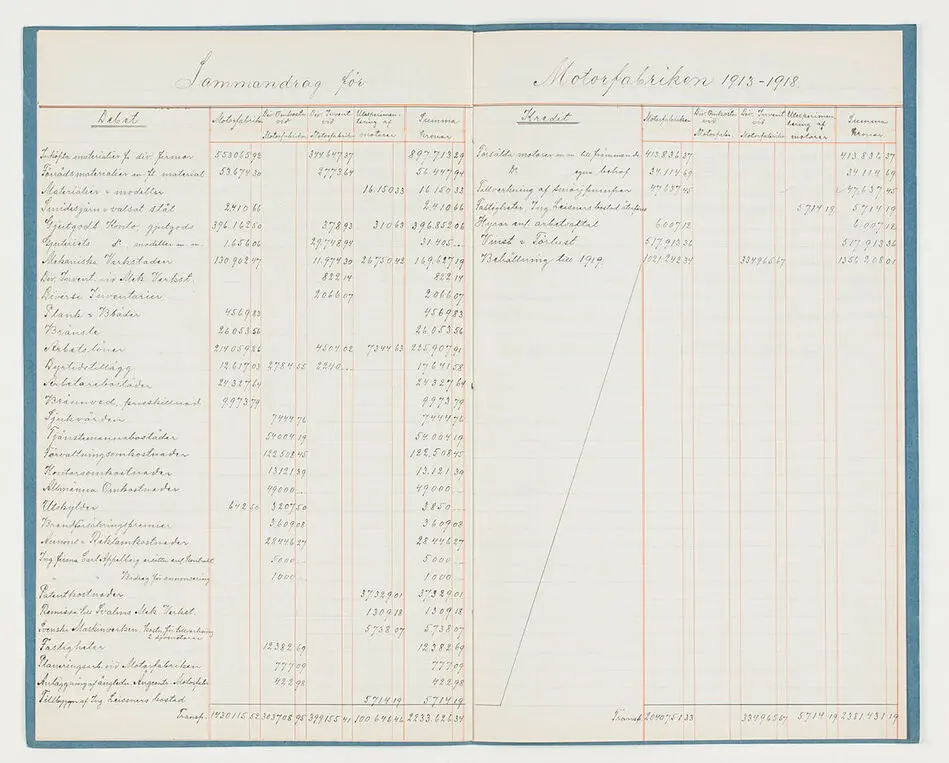 Sammandrag för
Debet Motorfabriken Div. Omkostn. vid Motorfabriken Div. Invent. vid Motorfabriken Utexperimentering af motorer Summa Kronor
Inköpta materialier fr. div. firmor 553.065 92 344.647 37 897.713 29
Förrådsmaterialier m. fl. material 53.674 30 2.773 64 56.447 94
Materialier & modeller 16.150 33 16.150 33
Smidesjärn & valsat stål 2.410 66 2.410 66
Gjutgods Konto, gjutgods 396.162 50 378 93 310 63 396.852 06
Gjuteriets do modeller m. m. 1.656 06 29.748 94 31.405 ..
Mekaniska Verkstaden 130.902 47 11.974 30 26.750 42 169.627 19
Div. Invent. vid Mek. Verkst. 822 14 822 14
Diverse Inventarier 2.066 07 2.066 07
Plank & Bräder 4.569 83 4.569 83
Bränsle 26.053 56 26.053 56
Arbetslöner 214.059 26 4.504 02 7.344 63 225.907 91
Dyrtidstillägg 12.617 03 2.784 55 2.240 .. 17.641 58
Arbetarebostäder 24.327 64 24.327 64
Brännved, prisskillnad 9.973 79 9.973 79
Sjukvården 7.444 76 7.444 76
Tjänstemannabostäder 54.004 19 54.004 19
Förvaltningsomkostnader 122.508 45 122.508 45
Kontorsomkostnader 13.121 39 13.121 39
Allmänna Omkostnader 49.000 .. 49.000 ..
Utskylder 642 50 3.207 50 3.850 ..
Brandförsäkringspremier 3.609 08 3.609 08
Annons & Reklamkostnader 28.446 27 28.446 27
Ing. firma Carl Appelberg enl. Kontrakt 5.000 .. 5.000 ..
" " Bidrag för annonsering 1.000 .. 1.000 ..
Patentkostnader 37.329 01 37.329 01
Remissa till Svalins Mek. Verkst. 1.309 18 1.309 18
Svenska Maskinverken, kostn. för tillverkning 5.738 07 5.738 07
Fastigheter 12.382 69 12.382 69
Planeringsarb. vid Motorfabriken 777 09 777 09
Anläggning af ångledn. Motorfabr. 422 98 422 98
Tillbyggn. af Ing. Leissners bostad 5.714 19 5.714 19
Transp. 1.430.115 52 303.708 95 399.155 41 100.646 46 2.233.626 34
Motorfabriken 1913-1918.
Kredit Motorfabriken Div. Omkostn. vid Motorfabr. Div. Invent. vid Motorfabriken Utexperimentering af motorer Summa Kronor
Försålda motorer m. m. till främmande 413.836 37 413.836 37
Do egna behof 34.114 69 34.114 69
Tillverkning af smörjpumpar 47.637 45 47.637 45
Fastigheter, Ing. Leissners bostad 5.714 19 5.714 19
Hyror enl. arbetsaftal 6.007 12 6.007 12
Vinst & Förlust 517.913 36 517.913 36
Behållning till 1919 1.021.242 34 334.965 67 1.356.208 01
Transp. 2.040.751 33 334.965 67 5.714 19 2.381.431 19